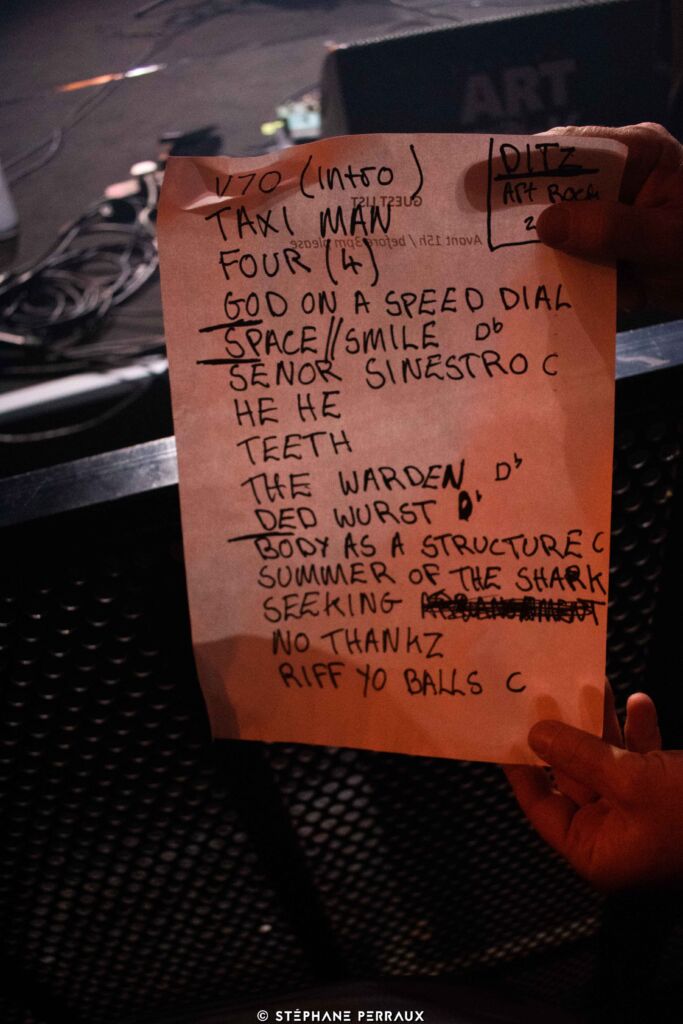 ART
V70 (intro)
DITZ
ART ROCK
2
GUEST LIST
TAXI MAN
Avant 15h / before 3pm please
FOUR (4)
GOD ON A SPEED DIAL
SPACE//SMILE Db
SENOR SINESTRO C
HE HE
TEETH
THE WARDEN Db
DED WURST
BODY AS A STRUCTURE C
SUMMER OF THE SHARK
SEEKING
NO THANKZ
RIFF YO BALLS C
© STÉPHANE PERRAUX